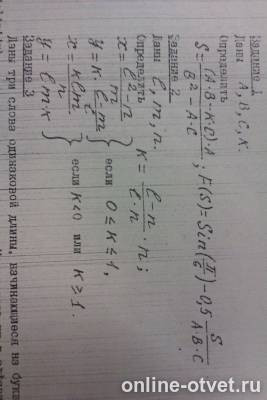 Задание 1
Даны A, B, C, K.
Определить
S = (A·B-K·C)·A / B² - A·C ; F(S) = Sin(π/6) - 0,5 S / A·B·C
Задание 2
Даны ℓ, m, n.
Определить K = ℓ-n / ℓ·n · n;
x = m / ℓ²-n
y = K· ℓ-m / ℓ } если 0 ≤ K ≤ 1,
x = Kℓm / n
y = ℓm·x } если K<0 или K ≥ 1.
Задание 3
Даны три слова одинаковой длины, начинающиеся на
online-otvet.ru